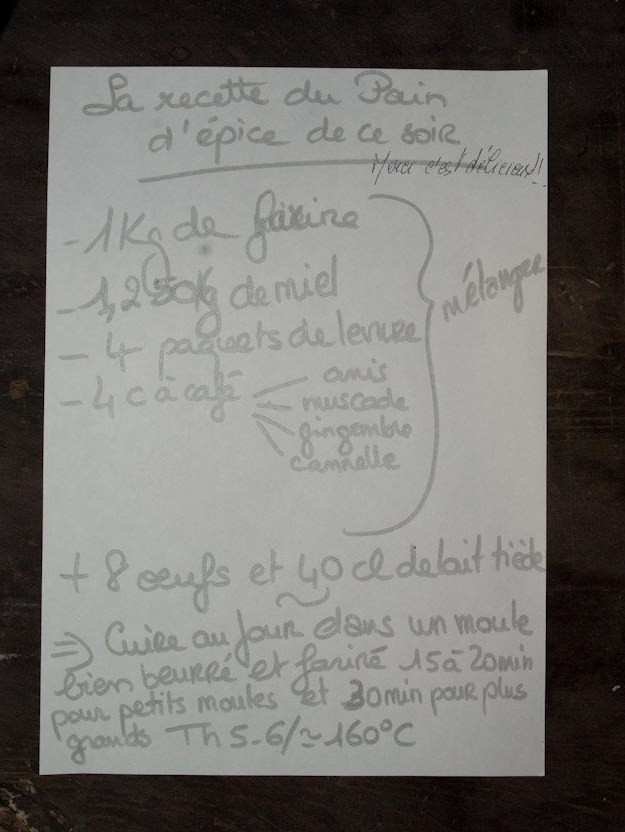 La recette du Pain
d'épice de ce soir
c'est délicieux!!
- 1 Kg de farine
- 1,250 Kg de miel
- 4 paquets de levure
- 4 c à café
anis
muscade
gingembre
cannelle
mélanger
+ 8 œufs et 40 cl de lait tiède
⇒ Cuire au four dans un moule
bien beurré et fariné 15 à 20 min
pour petits moules et 30 min pour plus
grands Th 5-6/≃160°C